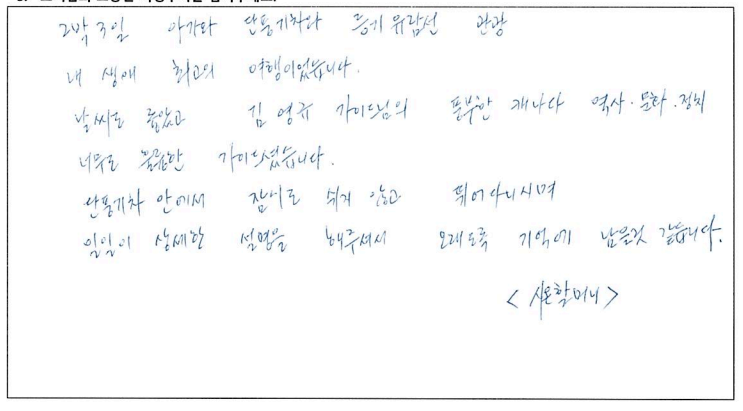 2박 3일 아가와 단풍기차와 등기 유람선 관광
내 생애 최고의 여행이었습니다.
날씨도 좋았고 김영규 가이드님의 풍부한 캐나다 역사·문화·정치
너무도 훌륭한 가이드셨습니다.
단풍기차 안에서 잠시도 쉬지 않고 뛰어다니시며
일일이 상세한 설명을 해주셔서 오래도록 기억에 남을것 같습니다.
<시온할머니>